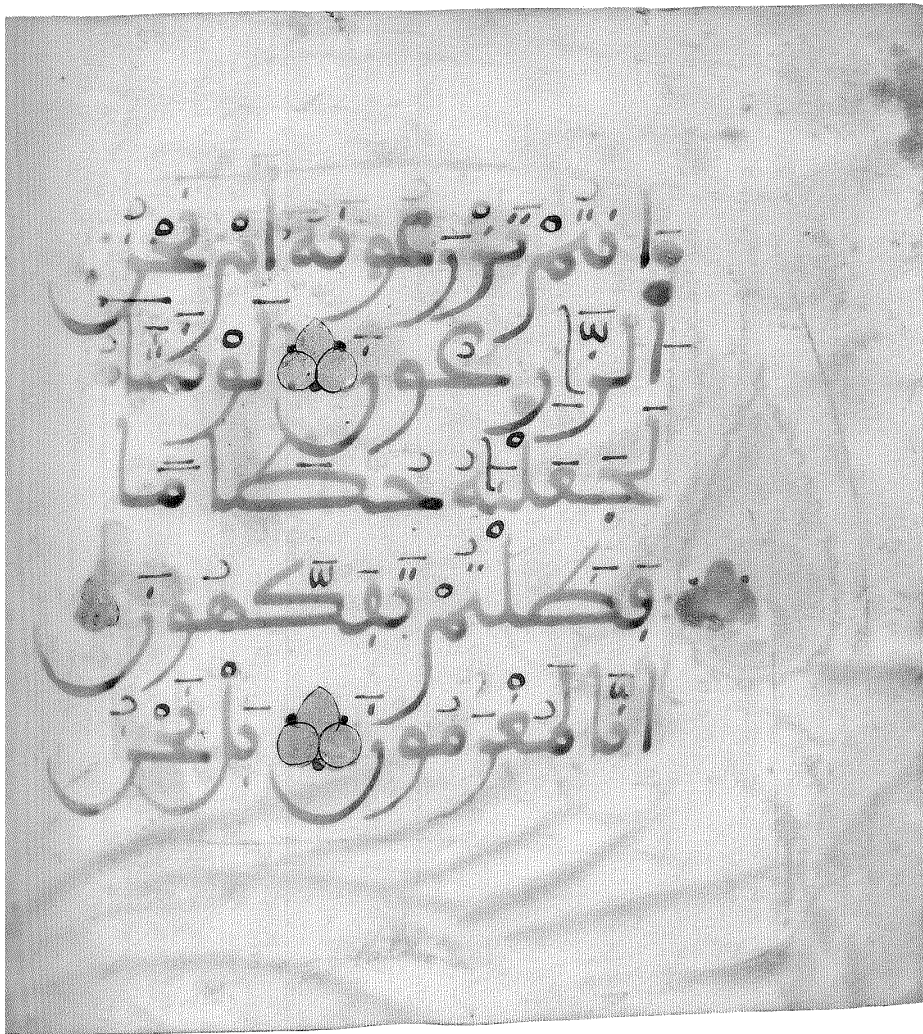 ءَانتُمْ تَزْرَعُونَهُ أَمْ نَحْنُ
الزَّٰرِعُونَ لَوْ نَشَآءُ
لَجَعَلْنَٰهُ حُطَامًا
فَظَلْتُمْ تَفَكَّهُونَ
إِنَّا لَمُغْرَمُونَ بَلْ نَحْنُ